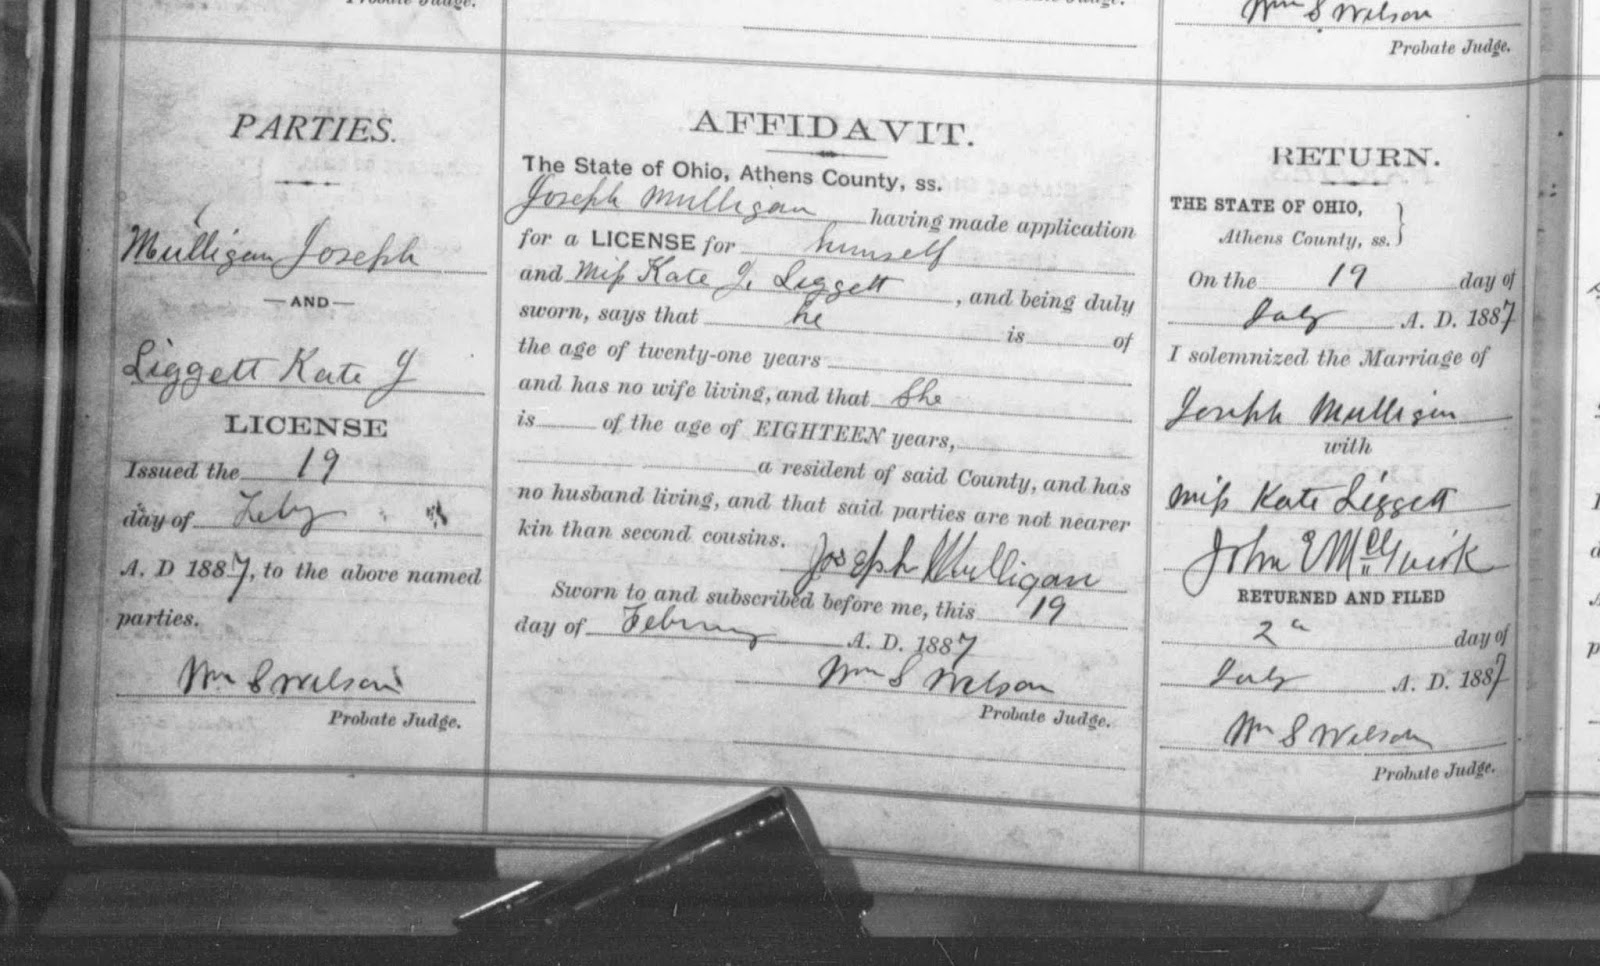 Probate Judge.
Wm S Wilson
Probate Judge.
PARTIES.
Mulligan Joseph
—AND—
Liggett Kate J
LICENSE
Issued the 19
day of Feby
A. D 1887, to the above named
parties.
Wm S Wilson
Probate Judge.
AFFIDAVIT.
The State of Ohio, Athens County, ss.
Joseph Mulligan having made application
for a LICENSE for himself
and Miss Kate J. Liggett, and being duly
sworn, says that he is of
the age of twenty-one years
and has no wife living, and that She
is of the age of EIGHTEEN years,
a resident of said County, and has
no husband living, and that said parties are not nearer
kin than second cousins.
Joseph Mulligan
Sworn to and subscribed before me, this 19
day of February A. D. 1887
Wm S Wilson
Probate Judge.
RETURN.
THE STATE OF OHIO, }
Athens County, ss. }
On the 19 day of
July A. D. 1887
I solemnized the Marriage of
Joseph Mulligan
with
Miss Kate Liggett
John E McGuirk
RETURNED AND FILED
2 day of
July A. D. 1887
Wm S Wilson
Probate Judge.